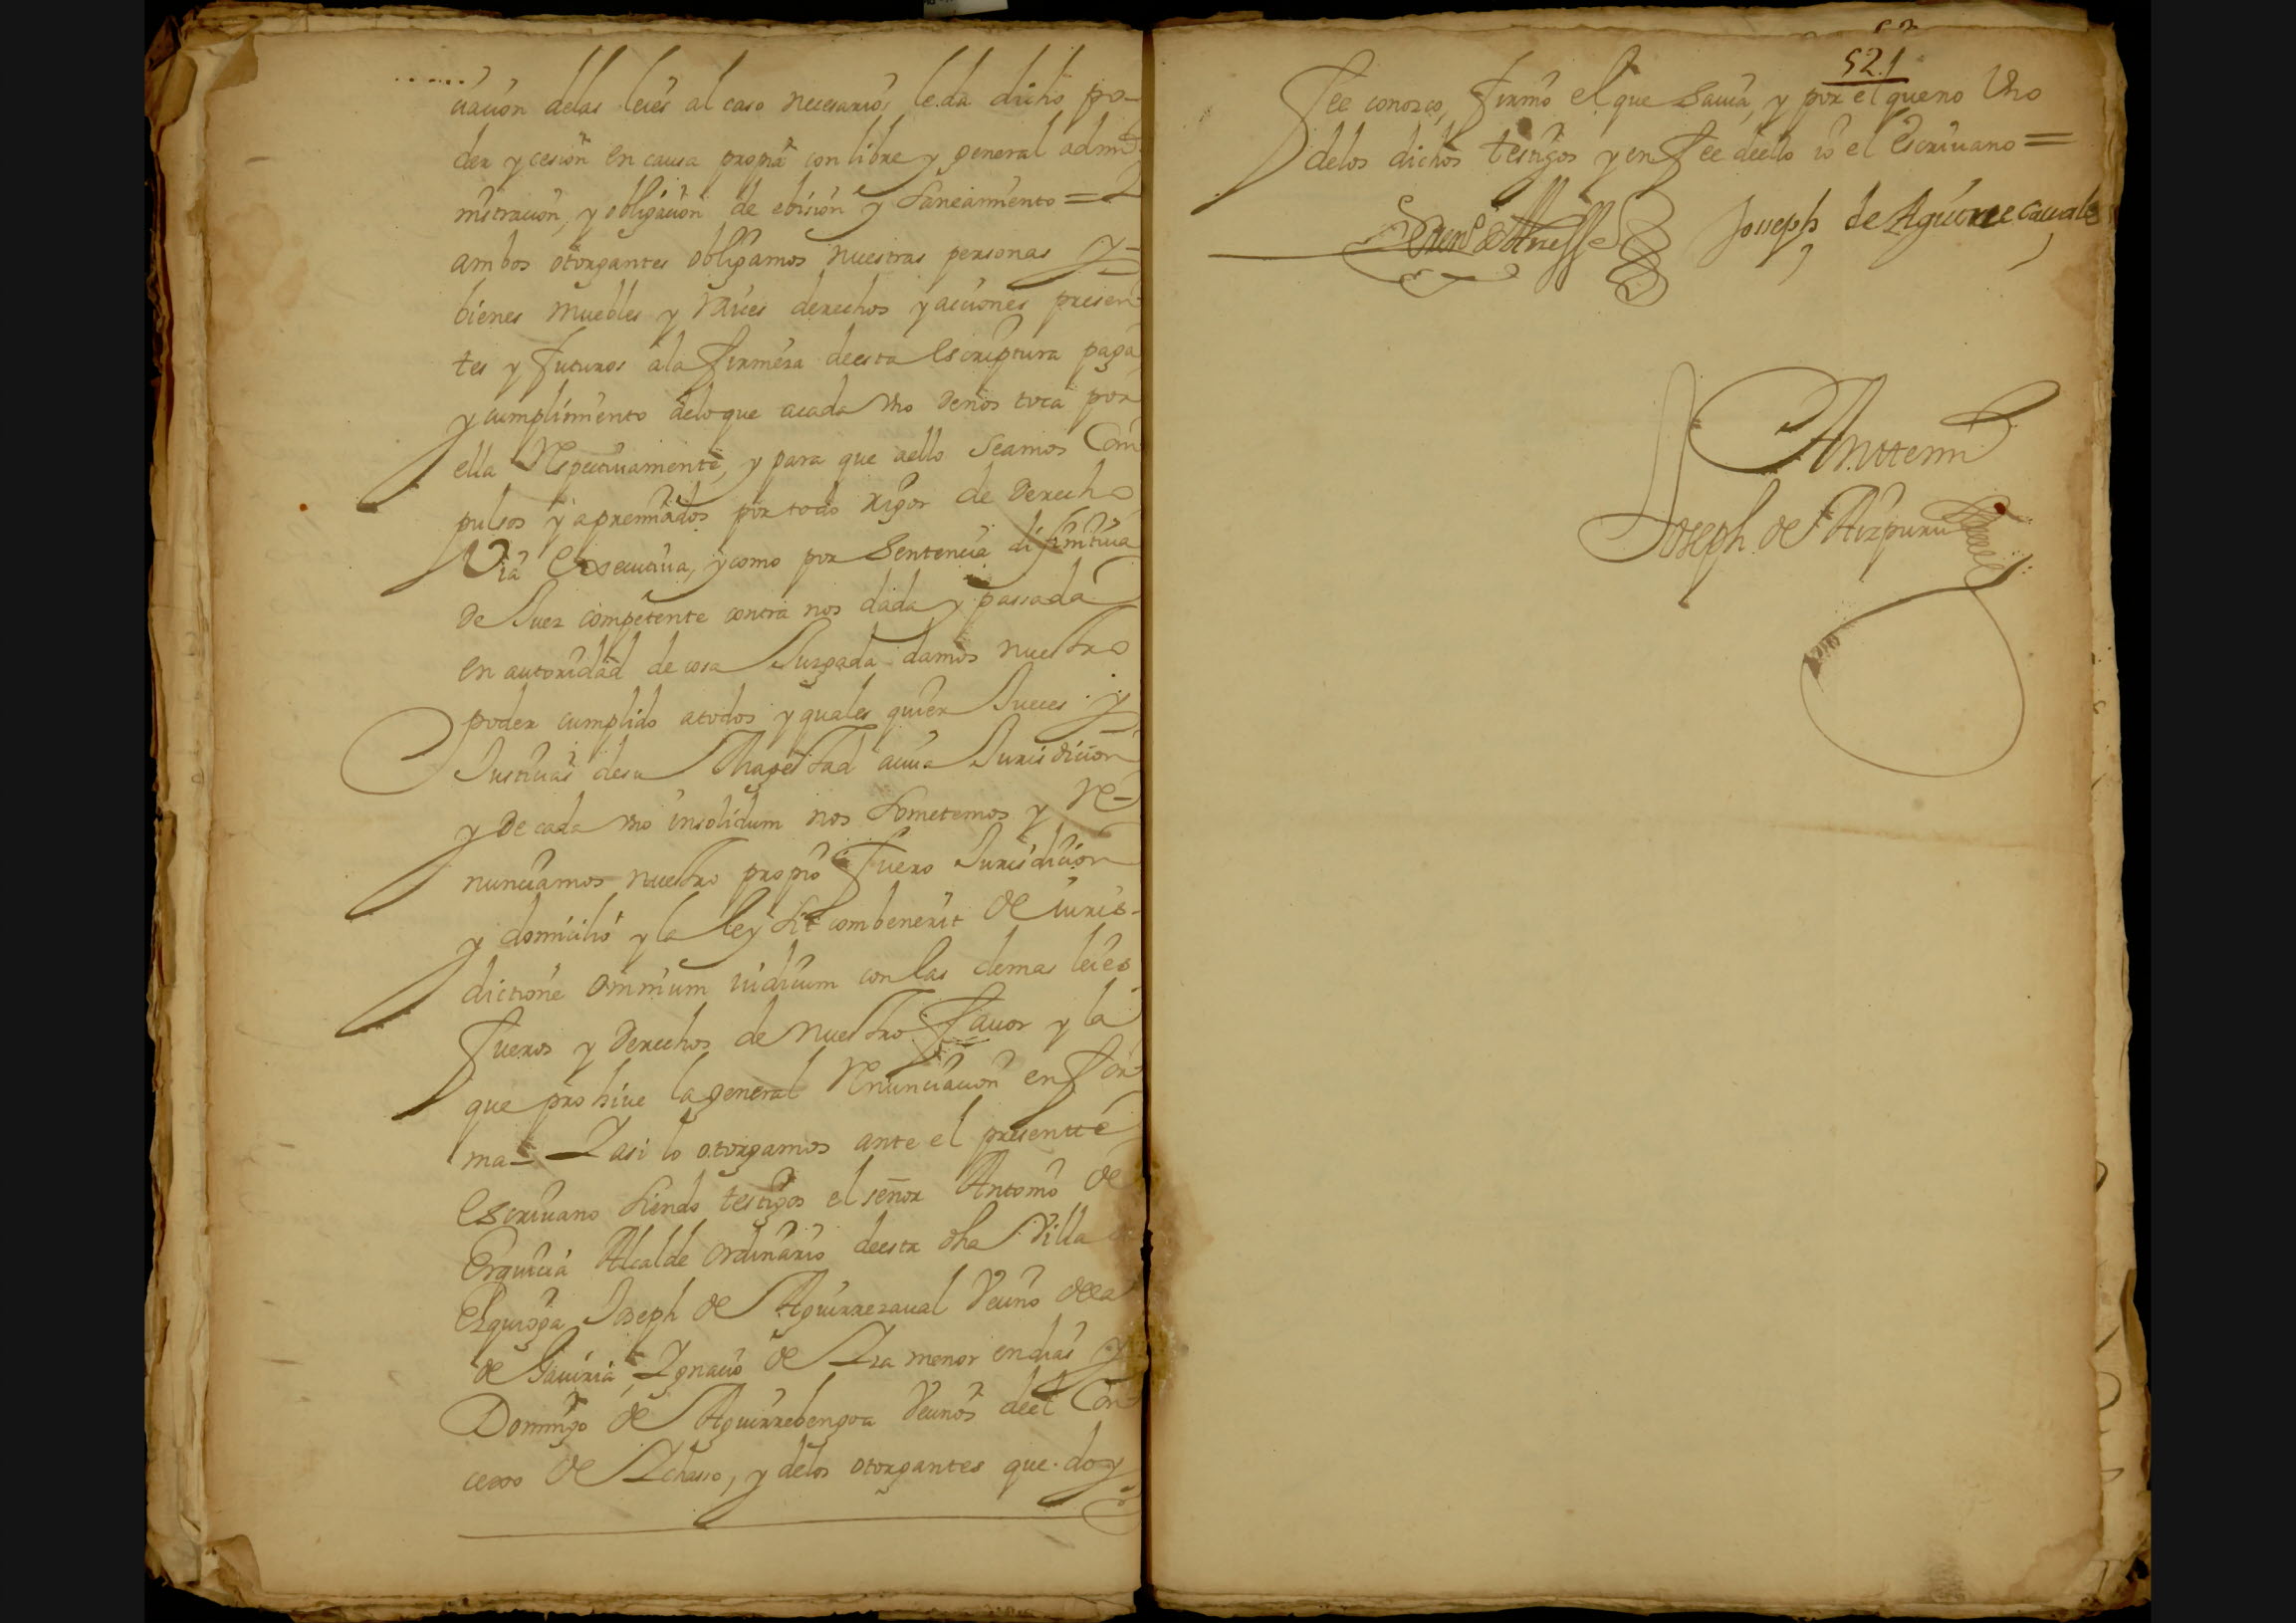 ciacion delas leies al caso necesarios le da dicho po-
der y cesion en causa propia con libre y general admi-
nistracion, y obligacion de ebision y Saneamiento =
ambos otorgantes obligamos nuestras personas y
bienes muebles y raices derechos y aciones presen-
tes y futuros ala firmeza deesta escriptura paga
y cumplimiento delo que acada vno denos toca por
ella Respectiuamente, y para que aello seamos Com
pulsos y apremiados por todo rigor de derecho
Via executiua, y como por Sentencia difinitiua
de Juez competente contra nos dada y passada
en autoridad de cosa Juzgada damos nuestro
poder cumplido atodos y quales quier Jueces y
Justicias desu Magestad acuia Jurisdicion
y de cada vno insolidum nos Sometemos y Re-
nunciamos nuestro propio fuero Jurisdicion
y domicilio y la ley Sit combenerit de iuris-
dictione omnium iudicum con las demas leies
fueros y derechos de nuestro fauor y la
que prohiue la general Renunciacion en for
ma- Y asi lo otorgamos ante el presente
escriuano Siendo testigos el señor Antonio de
Erquicia Alcalde ordinario deesta dha Villa
Ezquioga Joseph de Aguirrezaual Vecino dela
de Gauiria, Ygnacio de Yza menor en dias y
Domingo de Aguirrebengoa Vecinos deel Con
cexo de Ychasso, y delos otorgantes que doy
521
fee conozco, firmo el que Sauia, y por el que no Vno
delos dichos testigos y en fee deello io el escriuano =
Joseph de Aguirrecaual
Anttemi
Joseph de Aizpuru